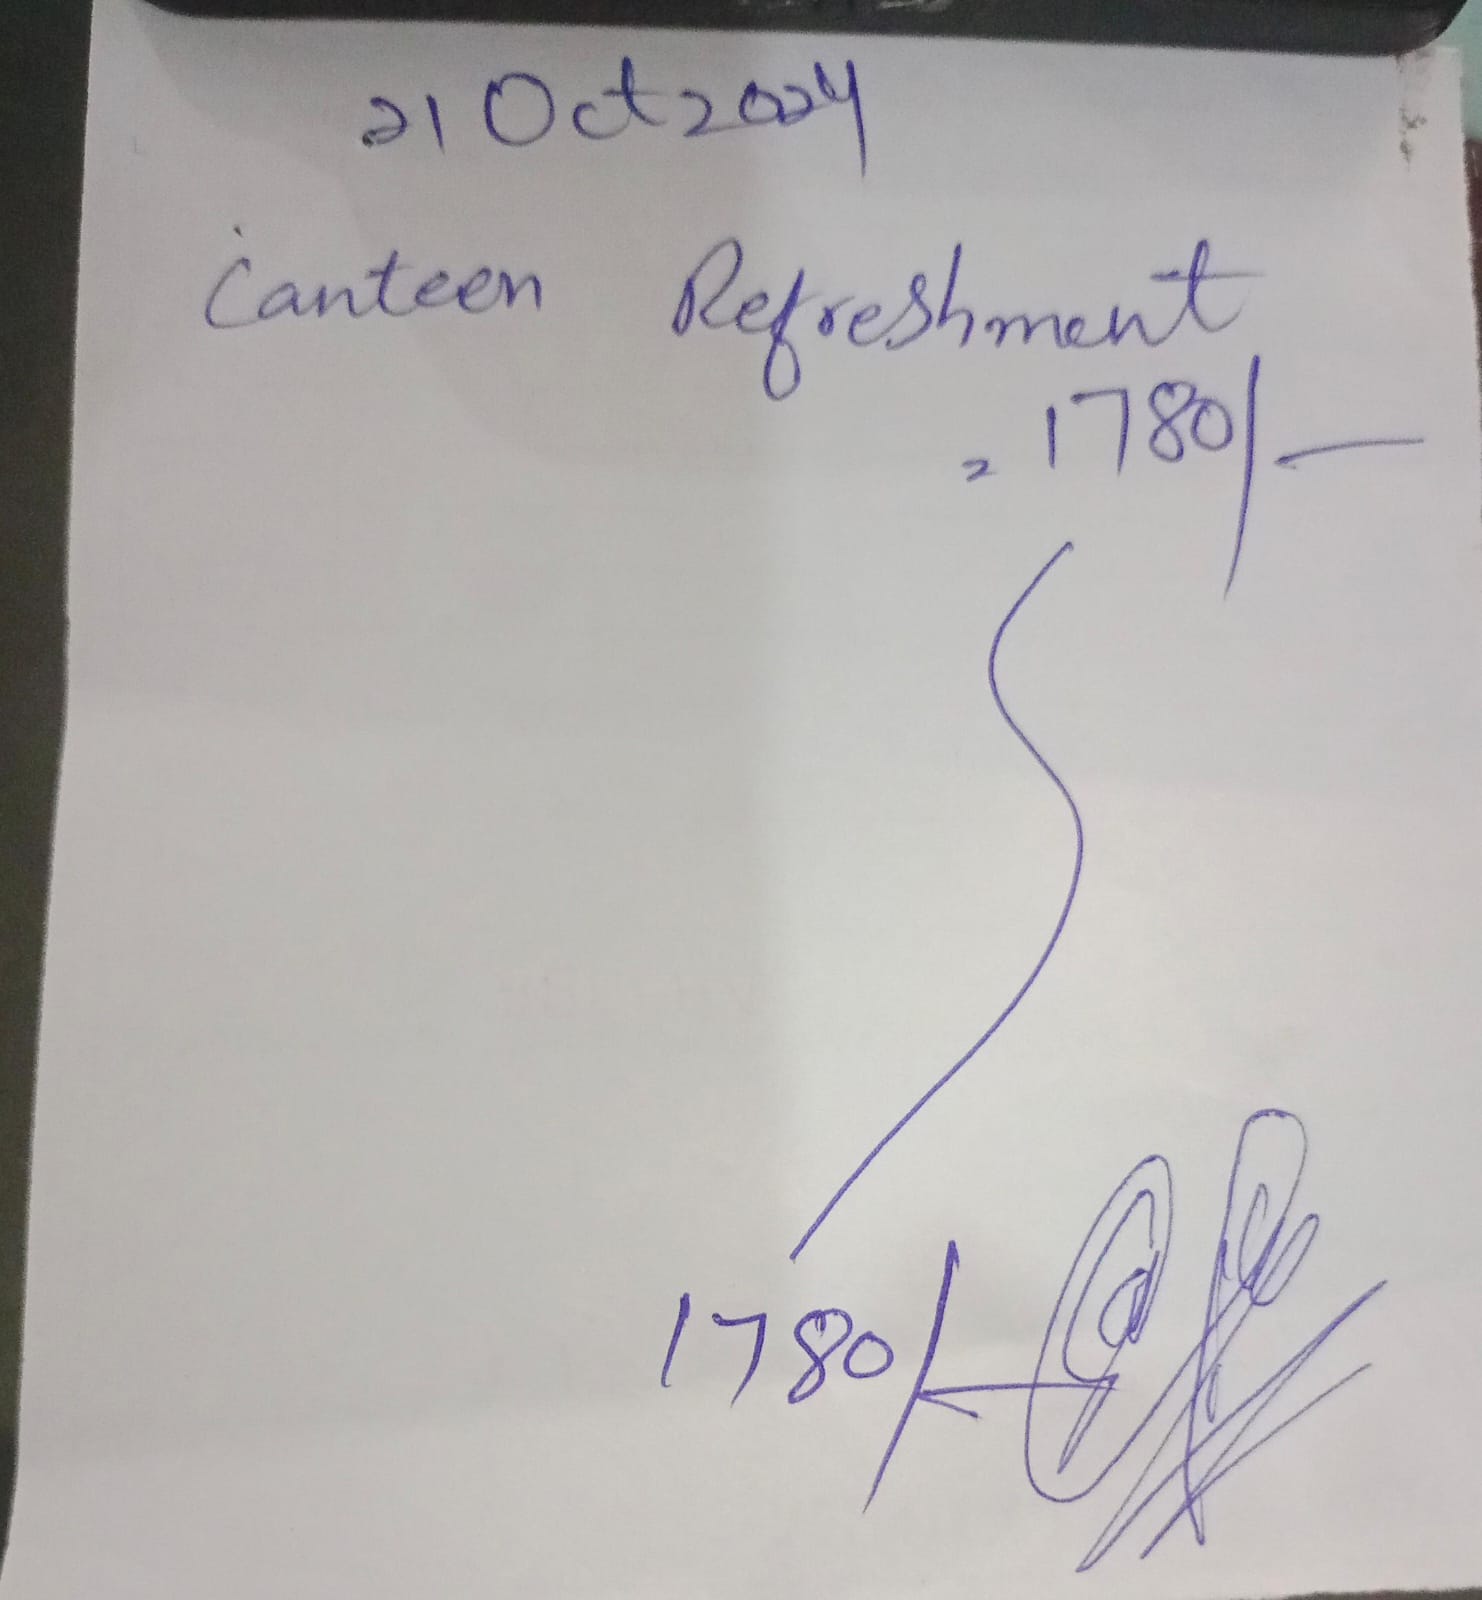 21 Oct 2024
Canteen Refreshment
= 1780/-
1780/-